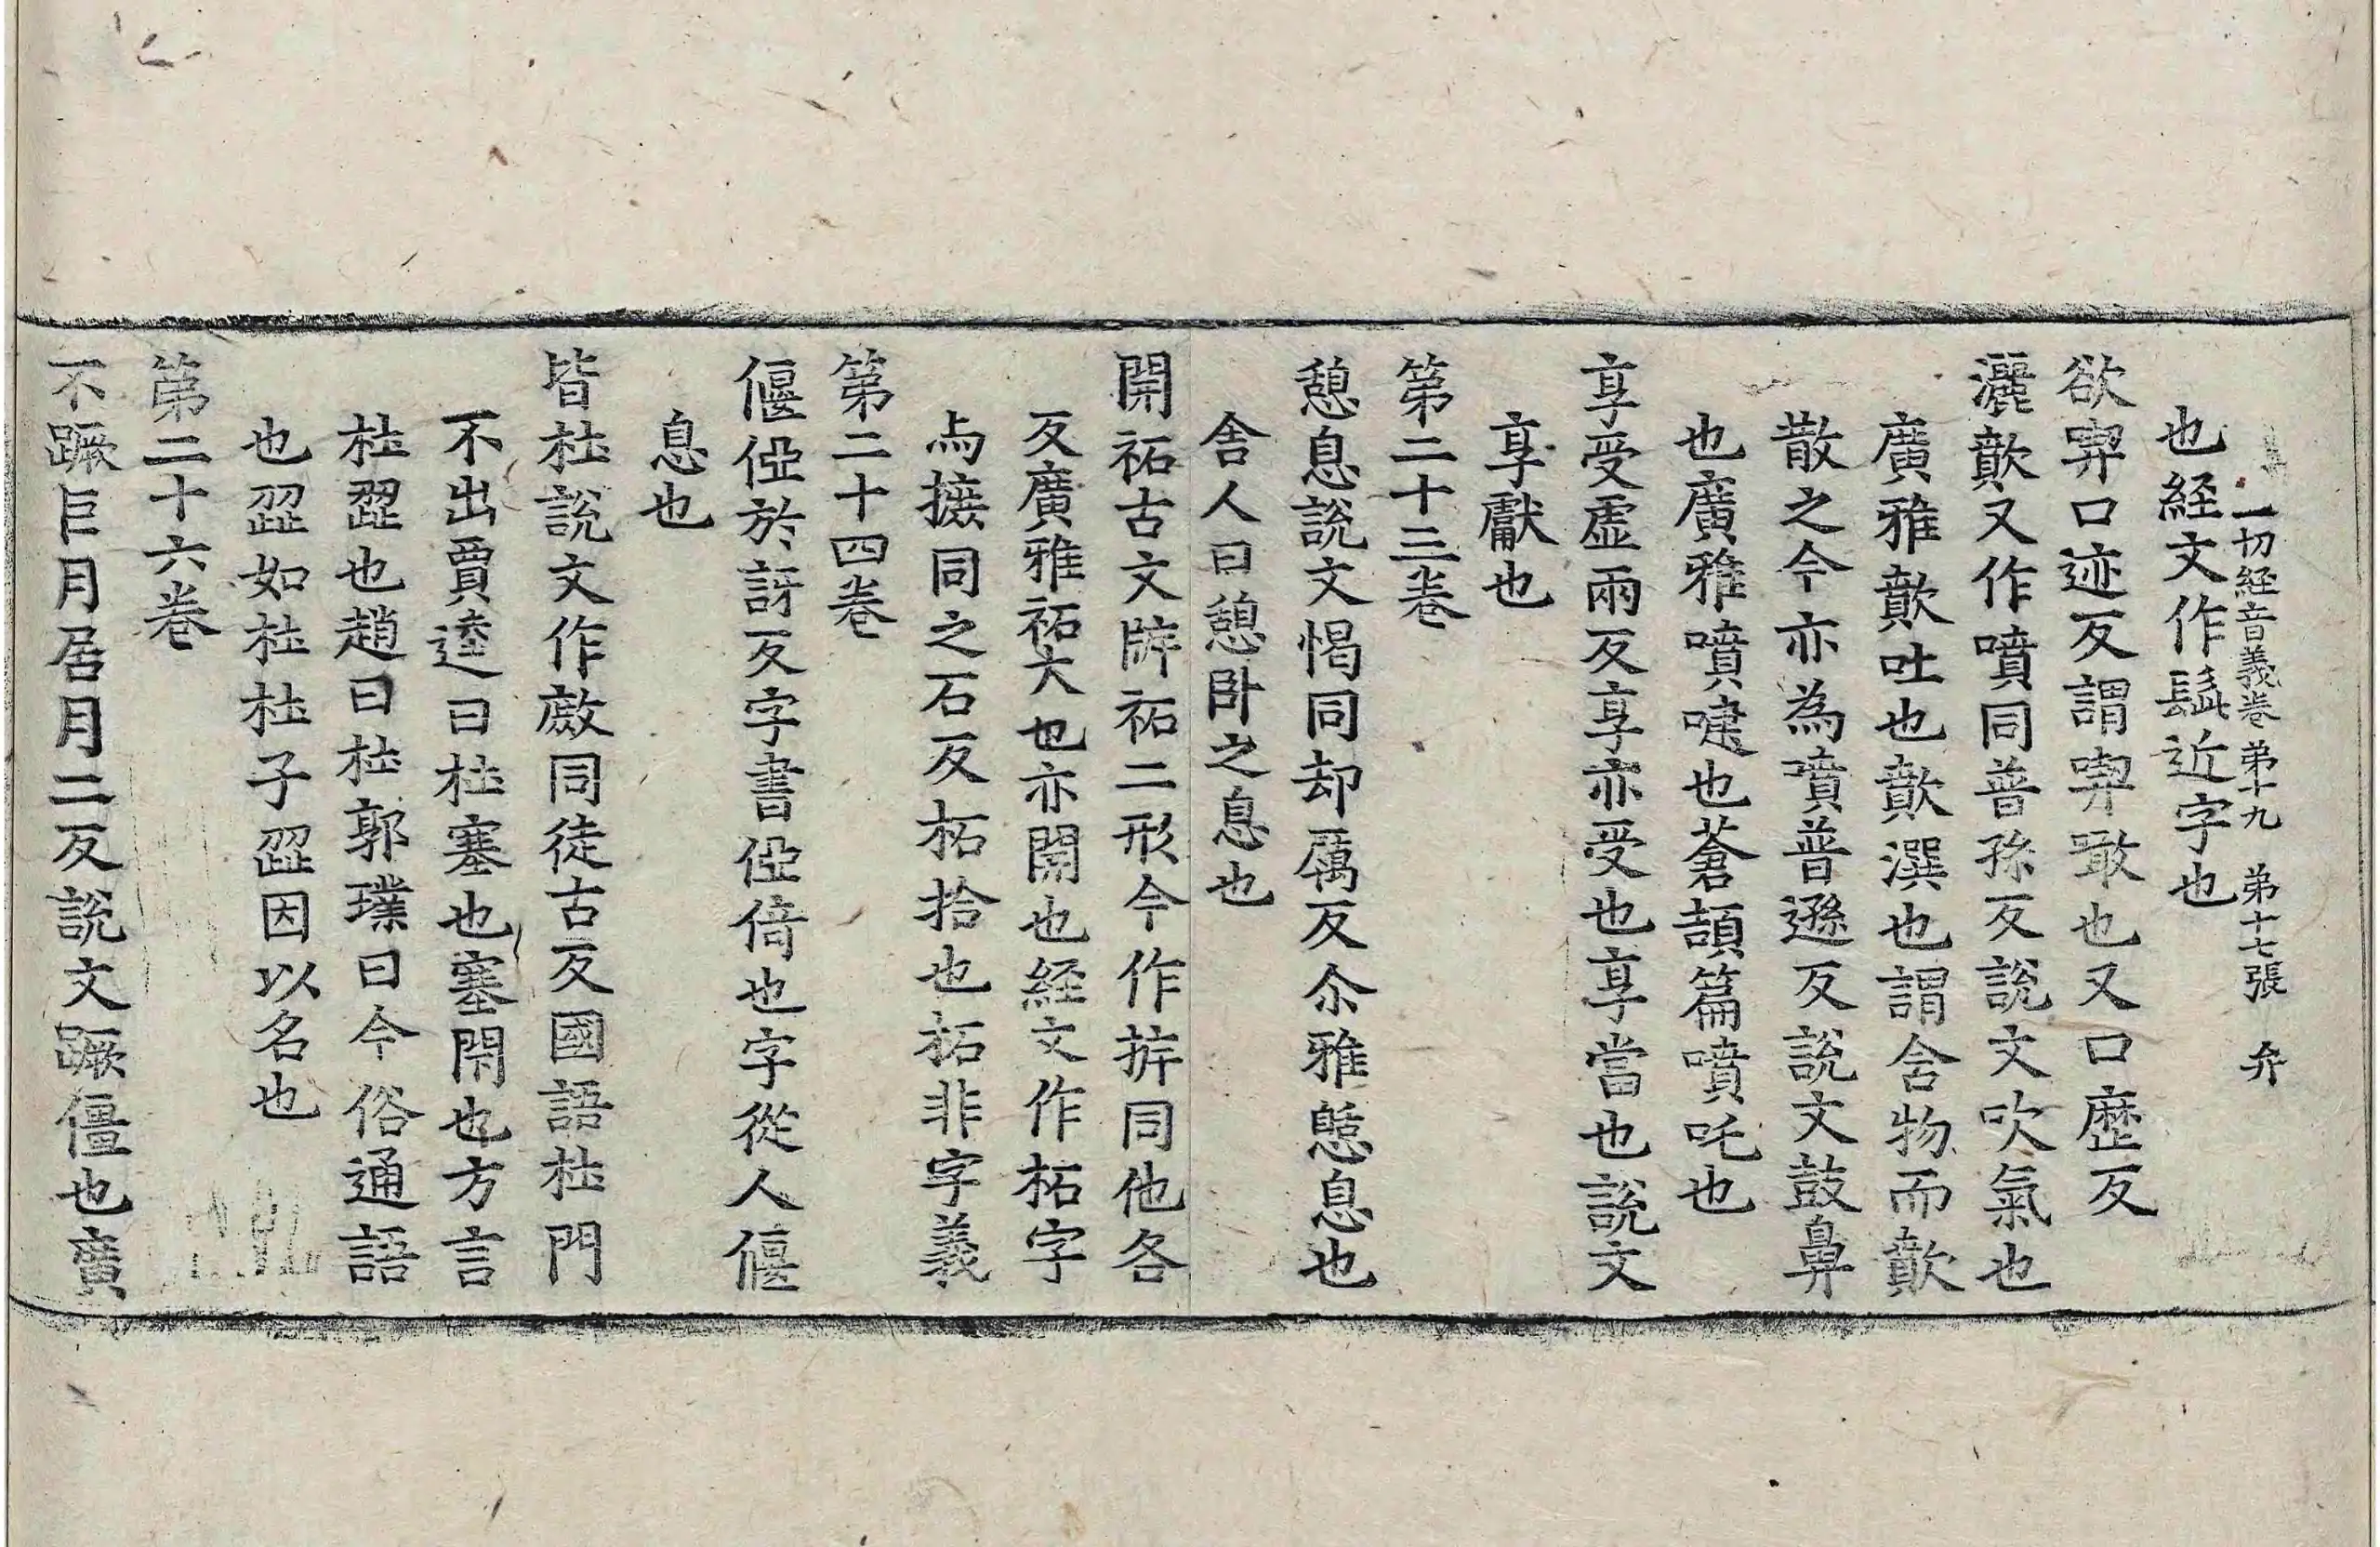 一切経音義卷第十九 第十七張 弁
也経文作髭近字也
欲㖞口迹反謂㖞噉也又口歷反
灑歕又作噴同普孫反說文吹氣也
廣雅歕吐也歕潠也謂含物而歕
散之今亦為噴普遜反說文鼓鼻
也廣雅噴嚏也蒼頡篇噴吒也
享受虛兩反享亦受也享當也說文
享獻也
第二十三卷
憩息說文愒同却厲反尒雅憩息也
舍人曰憩卧之息也
開祏古文㡿祏二形今作㧊同他各
反廣雅祏大也亦開也経文作柘字
与摭同之石反柘拾也柘非字義
第二十四卷
偃俹於訝反字書俹倚也字從人偃
息也
皆杜說文作敷同徒古反國語杜門
不出賈逵曰杜塞也塞閇也方言
杜歰也趙曰杜郭璞曰今俗通語
也歰如杜杜子歰因以名也
第二十六卷
不蹶巨月居月二反說文蹶僵也廣